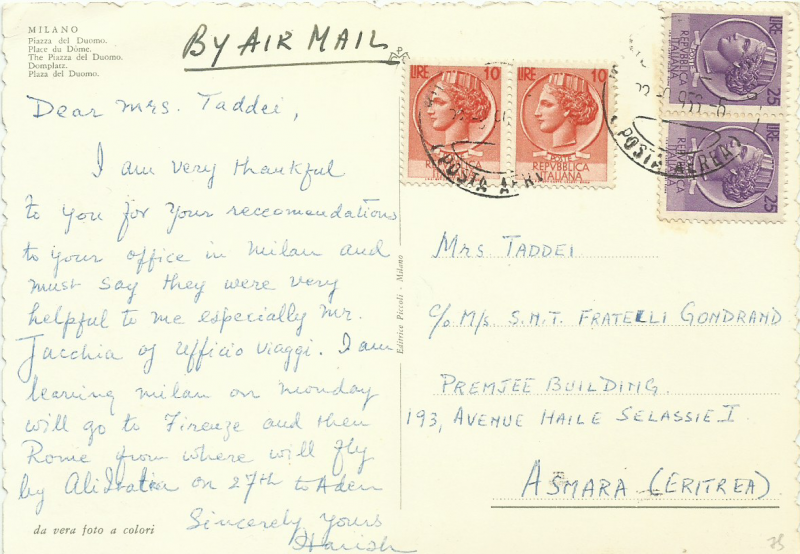 MILANO
Piazza del Duomo.
Place du Dôme.
The Piazza del Duomo.
Domplatz.
Plaza del Duomo.
BY AIR MAIL
Dear Mrs. Taddei,
I am very thankful
to you for your reccomendations
to your office in Milan and
must say they were very
helpful to me especially Mr.
Jacchia of Ufficio Viaggi. I am
leaving Milan on Monday
will go to Firenze and then
Rome from where will fly
by Alitalia on 27th to Aden
Sincerely yours
Harish
da vera foto a colori
Editrice Piccoli - Milano
LIRE 10
LIRE 10
POSTE
REPVBBLICA
ITALIANA
LIRE 25
REPVBBLICA
ITALIANA
LIRE 25
REPVBBLICA
ITALIANA
POSTA AER
POSTA AEREA
MRS TADDEI
C/o M/s S.N.T. FRATELLI GONDRAND
PREMJEE BUILDING.
193, AVENUE HAILE SELASSIE I
ASMARA (ERITREA)
75